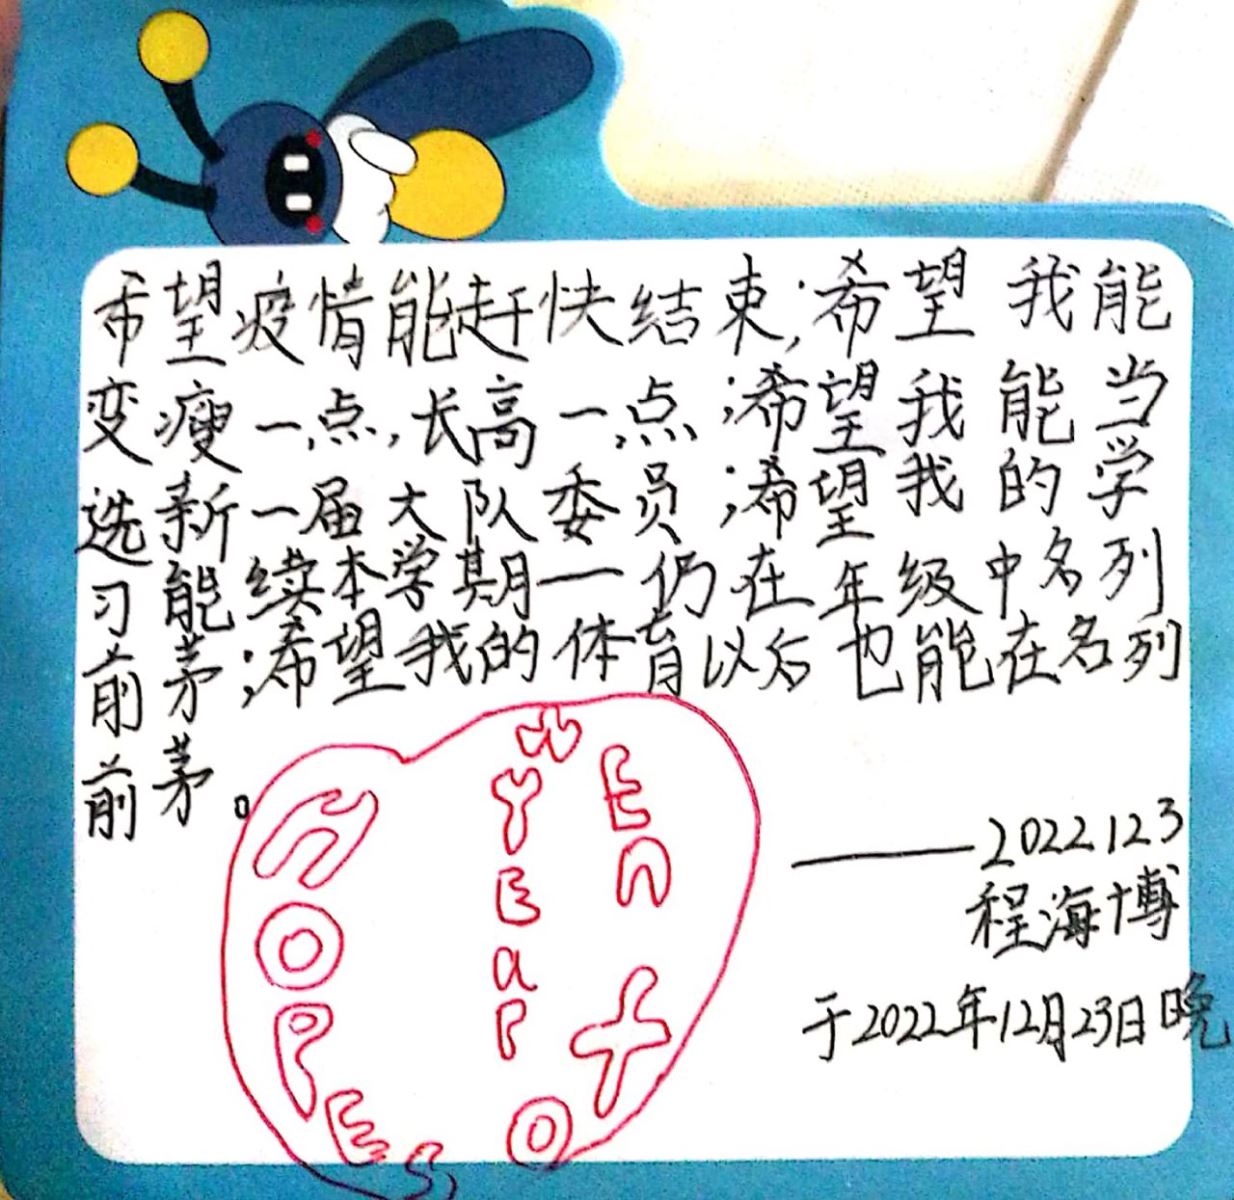 希望疫情能赶快结束;希望我能
变瘦一点,长高一点;希望我能当
选新一届大队委员;希望我的学
习能续本学期一仍在年级中名列
前茅;希望我的体育以后也能在名列
前茅。
HOPES
YEar
En
of
——2022123
程海博
于2022年12月23日晚